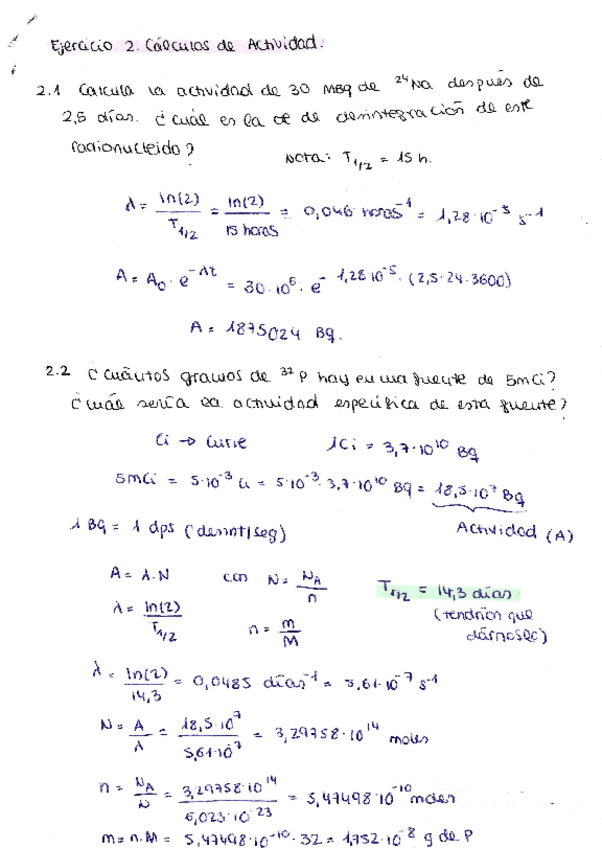 Ejercicio 2. Cálculos de Actividad.
2.1 Calcula la actividad de 30 MBq de ²⁴Na después de
2,5 días. ¿cuál es la cte de desintegración de este
radionucleido?
Nota: T₁/₂ = 15 h.
λ = ln(2)/T₁/₂ = ln(2)/15 horas = 0,046 horas⁻¹ = 1,28·10⁻⁵ s⁻¹
A = A₀ · e^-λt = 30·10⁶ · e^- 1,28·10⁻⁵ · (2,5·24·3600)
A = 1875024 Bq.
2.2 ¿cuántos gramos de ³²P hay en una fuente de 5mCi?
¿cuál sería la actividad específica de esta fuente?
Ci → Curie 1Ci = 3,7·10¹⁰ Bq
5mCi = 5·10⁻³ Ci = 5·10⁻³·3,7·10¹⁰ Bq = 18,5·10⁷ Bq
Actividad (A)
1 Bq = 1 dps (desint/seg)
A = λ·N con N = N_A/n
T₁/₂ = 14,3 días
(tendrían que
dárnoslo)
λ = ln(2)/T₁/₂
n = m/M
λ = ln(2)/14,3 = 0,0485 días⁻¹ = 5,61·10⁻⁷ s⁻¹
N = A/λ = 18,5·10⁷/5,61·10⁷ = 3,29758·10¹⁴ moles
n = N_A/N = 3,29758·10¹⁴/6,023·10²³ = 5,47498·10⁻¹⁰ moles
m = n·M = 5,47498·10⁻¹⁰·32 = 1,752·10⁻⁸ g de P